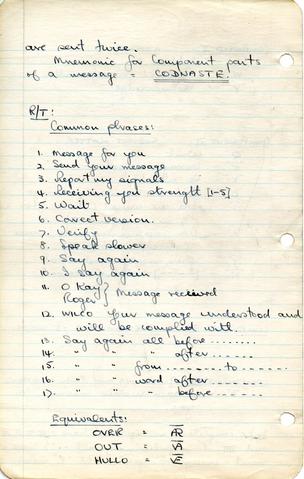 are sent twice.
Mnemonic for Component parts
of a message = CODNASTE.
R/T:
Common phrases:
1. Message for you
2. Send your message
3. Report my signals
4. Receiving you strength [1-5]
5. Wait
6. Correct version.
7. Verify
8. Speak slower
9. Say again
10. I Say again
11. O Kay } Message received
Roger
12. WILCO Your message understood and
will be complied with.
13. Say again all before ........
14. " " " after ......
15. " " " from ........ to .......
16. " " word after .......
17. " " " before .......
Equivalents:
OVER = AR
OUT = VA
HULLO = VE